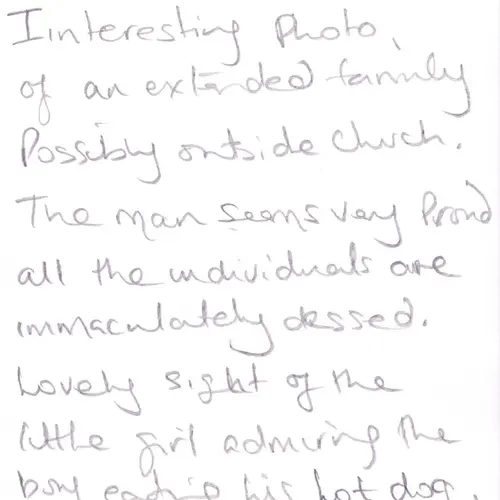 Iinteresting Photo,
of an extended family
Possibly outside church.
The man seems very Proud
all the individuals are
immaculately dessed.
Lovely sight of the
little girl admiring the
boy eating his hot dog.